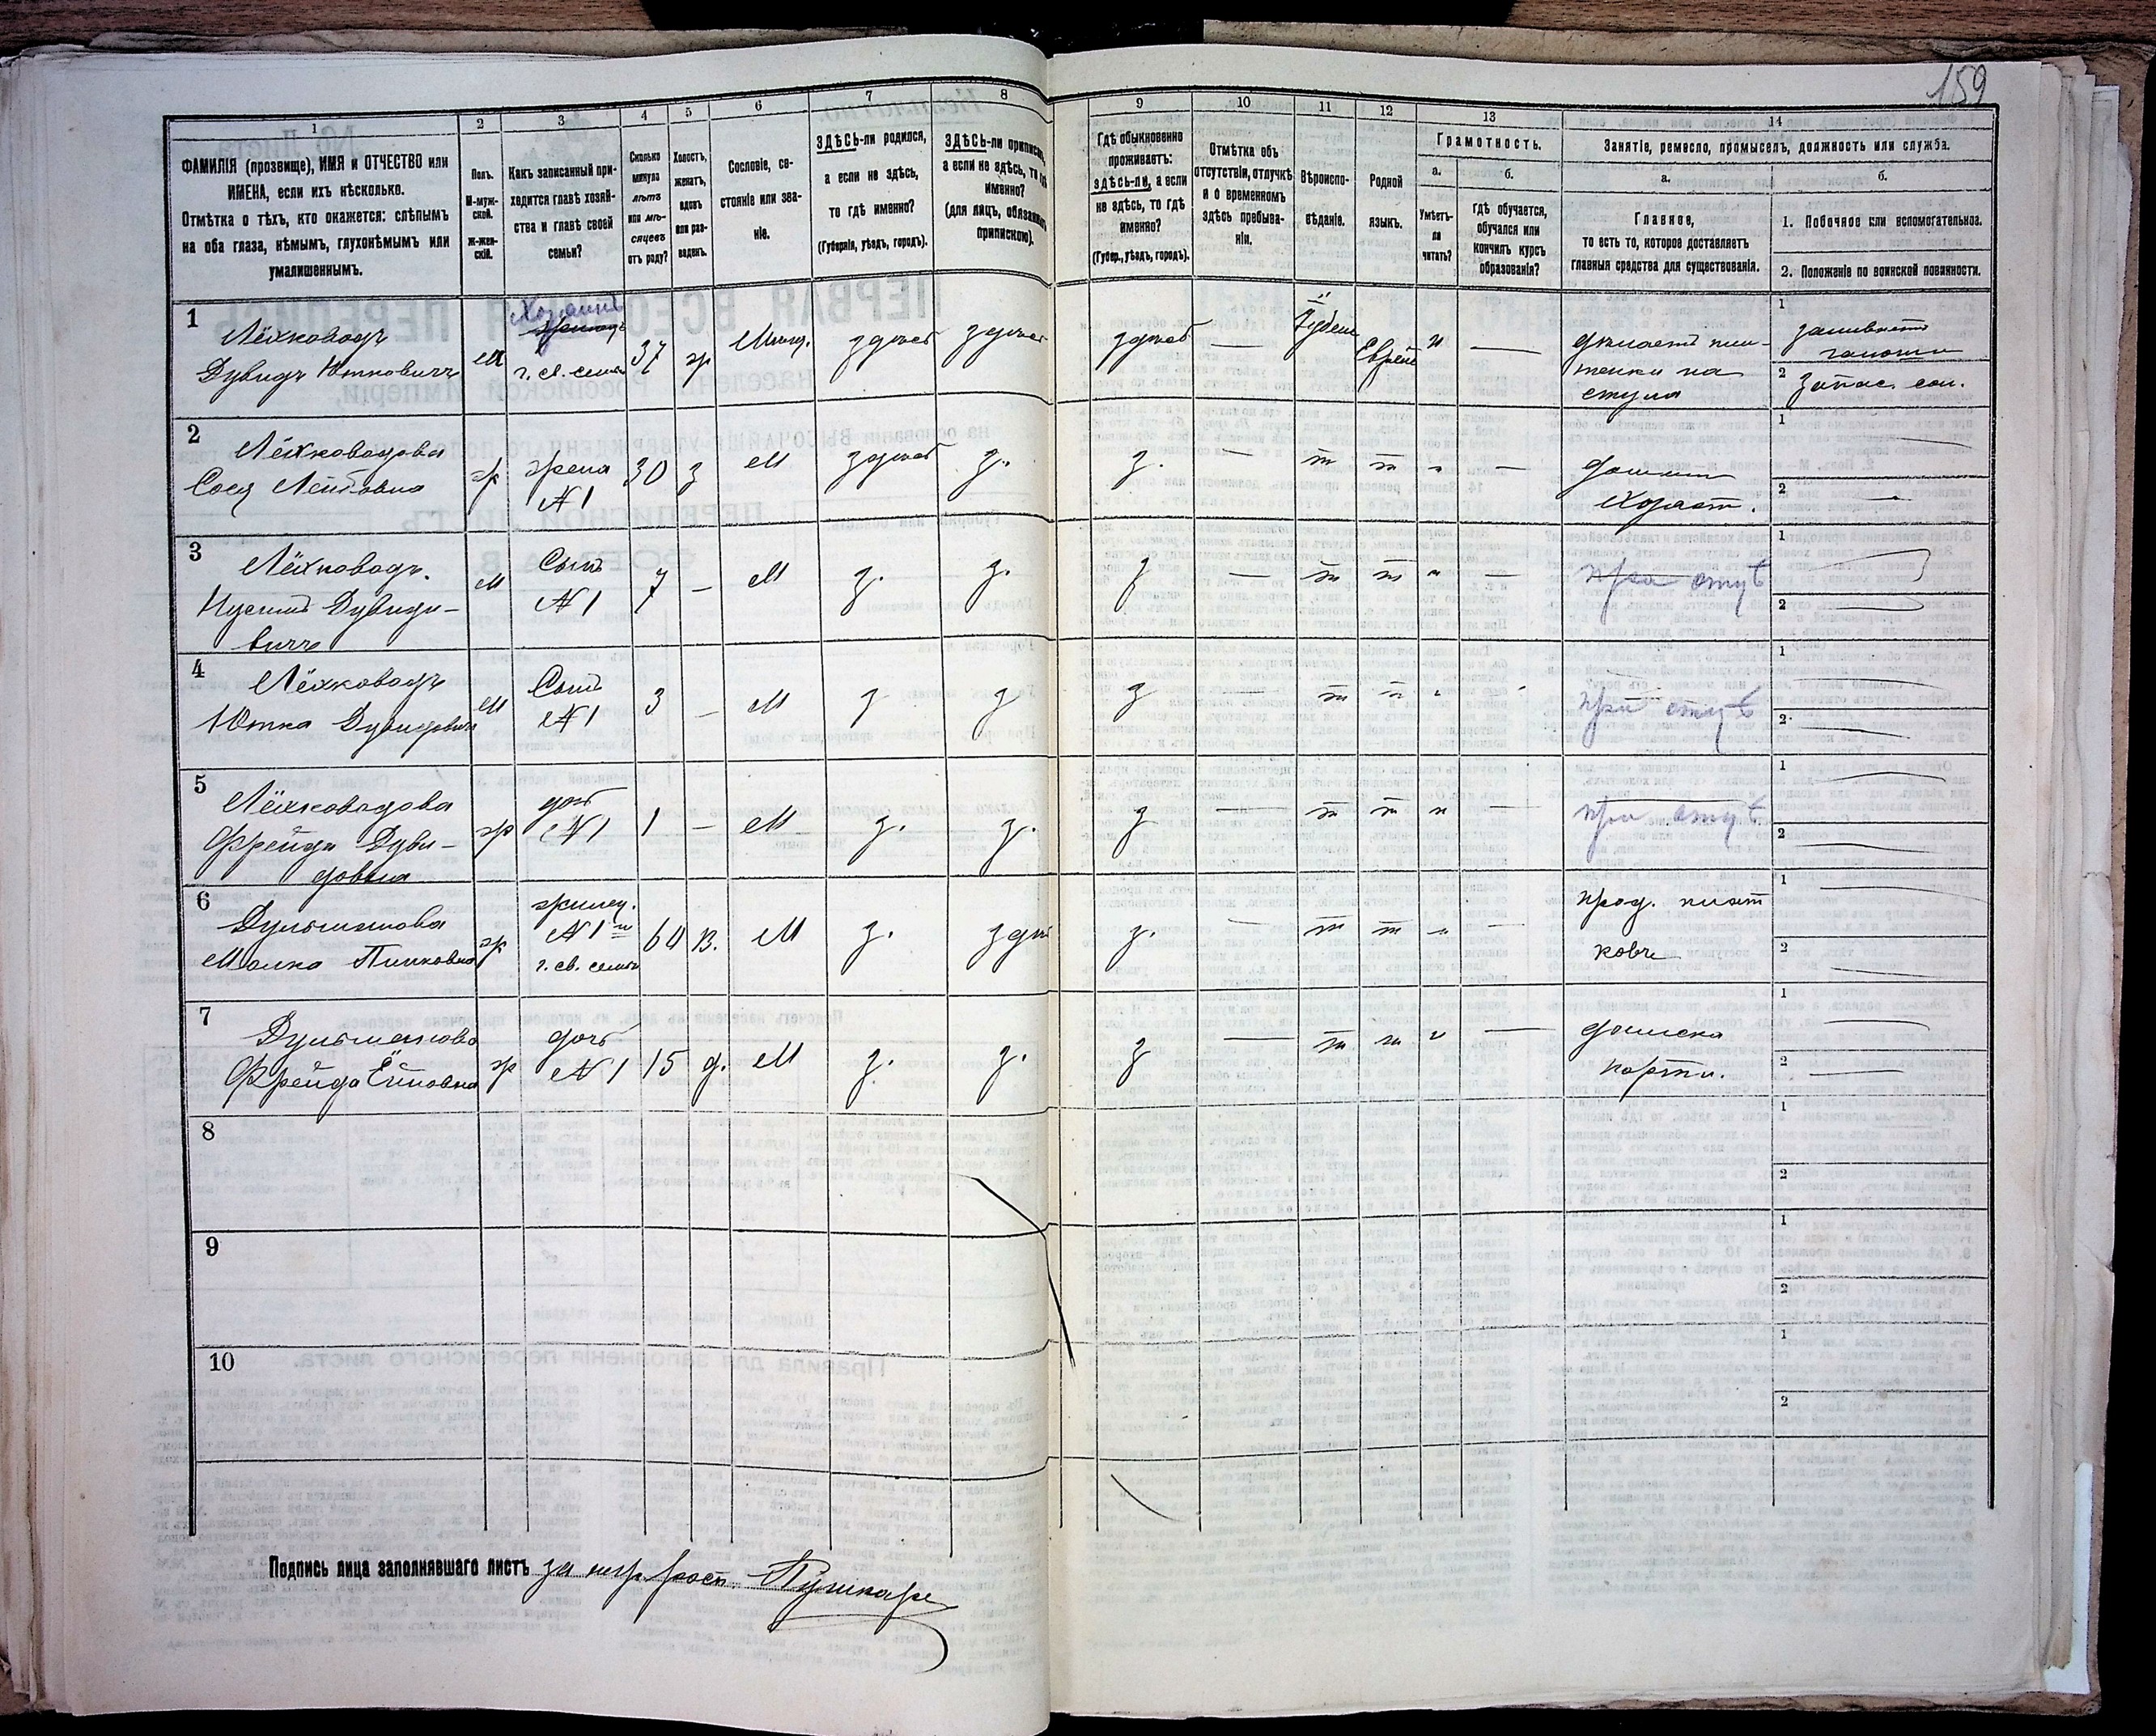 159
1
2
3
4
5
6
7
8
9
10
11
12
13
14
ФАМИЛІЯ (прозвище), ИМЯ и ОТЧЕСТВО или
ИМЕНА, если ихъ нѣсколько.
Отмѣтка о тѣхъ, кто окажется: слѣпымъ
на оба глаза, нѣмымъ, глухонѣмымъ или
умалишеннымъ.
Полъ.
М-муж-
ской.
Ж-жен-
скій.
Какъ записанный при-
ходится главѣ хозяй-
ства и главѣ своей
семьи?
Сколько
минуло
лѣтъ
или мѣ-
сяцевъ
отъ роду?
Холостъ,
женатъ,
вдовъ
или раз-
веденъ.
Сословіе, со-
стояніе или зва-
ніе.
ЗДѢСЬ-ли родился,
а если не здѣсь,
то гдѣ именно?
(Губернія, уѣздъ, городъ).
ЗДѢСЬ-ли приписанъ,
а если не здѣсь, то гдѣ
именно?
(для лицъ, обязанныхъ
припискою).
Гдѣ обыкновенно
проживаетъ:
здѣсь-ли, а если
не здѣсь, то гдѣ
именно?
(Губер., уѣздъ, городъ).
Отмѣтка объ
отсутствіи, отлучкѣ
и о временномъ
здѣсь пребыва-
ніи.
Вѣроиспо-
вѣданіе.
Родной
языкъ.
Грамотность.
а.
б.
Умѣетъ-
ли
читать?
Гдѣ обучается,
обучался или
кончилъ курсъ
образованія?
Занятіе, ремесло, промыселъ, должность или служба.
а.
б.
Главное,
то есть то, которое доставляетъ
главныя средства для существованія.
1. Побочное или вспомогательное.
2. Положеніе по воинской повинности.
1
Лёхководъ
Дувидъ Ютковичъ
м
Хозяинъ
г. св. семьи
37
ж
Мѣщ.
здѣсь
здѣсь
здѣсь
—
Іудей
Еврей
н
—
дѣлаетъ пле-
тенки на
стулья
1
2 запас. сол.
2
Лёхководова
Сося Лейбовна
ж
жена
№ 1
30
з
М
здѣсь
з.
з.
—
т
т
н
—
домашн.
хозяйст.
1 —
2 —
3
Лёхководъ
Нусинъ Дувидо-
вичъ
м
Сынъ
№ 1
7
—
М
з.
з.
з
—
т
т
н
—
при отцѣ
1 —
2 —
4
Лёхководъ
Ютка Дувидовичъ
м
Сынъ
№ 1
3
—
М
з
з
з
т
т
н
при отцѣ
1 —
2 —
5
Лёхководова
Фрейда Дуви-
довна
ж
дочь
№ 1
1
—
М
з.
з.
з
—
т
т
н
—
при отцѣ
1 —
2 —
6
Малка Пинковна
ж
жилец.
№ 1
г. св. семьи
60
в.
М
з.
здѣ
з.
—
т
т
н
—
1 —
2 —
7
ж
дочь
№ 1
15
д.
М
з.
з.
з
—
т
т
н
—
1 —
2 —
8
1
2
9
1
2
10
1
2
Подпись лица заполнявшаго листъ за негр. росп. Пушкарь